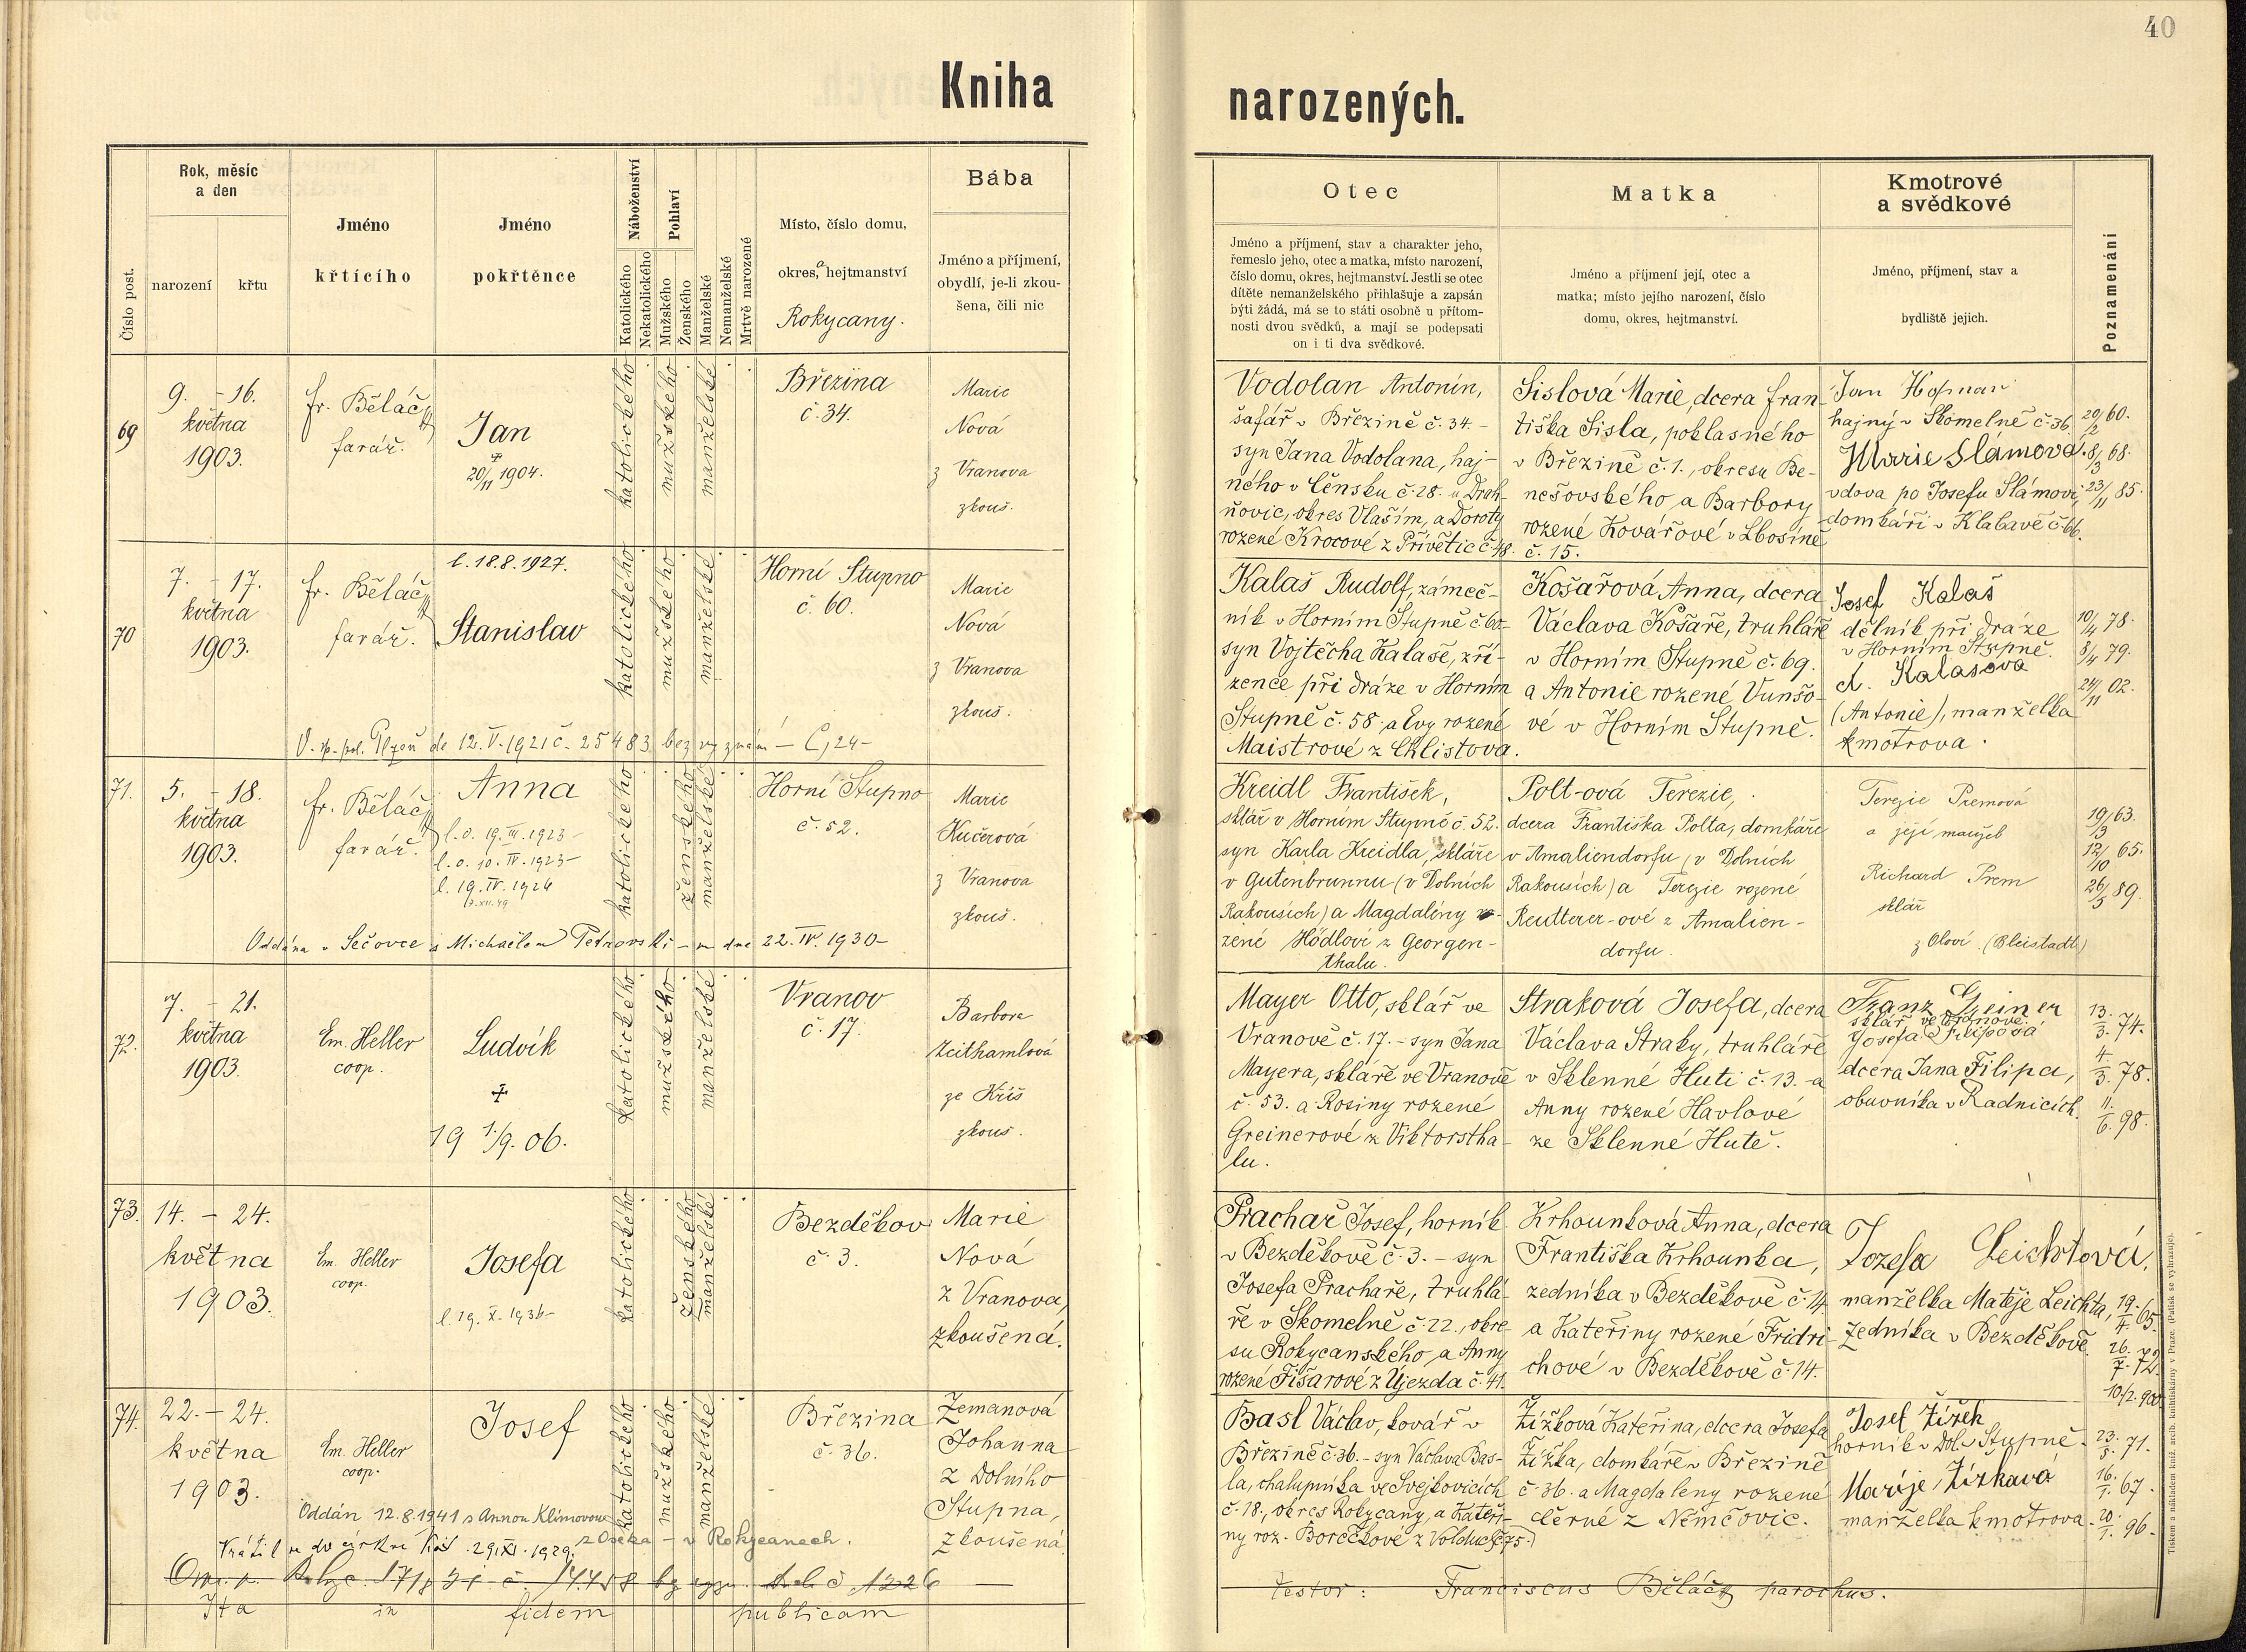 40
Kniha narozených.
Číslo post.
Rok, měsíc
a den
narození
křtu
Jméno
křtícího
Jméno
pokřtěnce
Náboženství
Katolického
Nekatolického
Pohlaví
Mužského
Ženského
Manželské
Nemanželské
Mrtvě narozené
Místo, číslo domu,
okres, hejtmanství
Rokycany.
Bába
Jméno a příjmení,
obydlí, je-li zkou-
šena, čili nic
Otec
Jméno a příjmení, stav a charakter jeho,
řemeslo jeho, otec a matka, místo narození,
číslo domu, okres, hejtmanství. Jestli se otec
dítěte nemanželského přihlašuje a zapsán
býti žádá, má se to státi osobně u přítom-
nosti dvou svědků, a mají se podepsati
on i ti dva svědkové.
Matka
Jméno a příjmení její, otec a
matka; místo jejího narození, číslo
domu, okres, hejtmanství.
Kmotrové
a svědkové
Jméno, příjmení, stav a
bydliště jejich.
Poznamenání
69
9. - 16.
května
1903.
fr. Běláč
farář.
Jan
20/11 1904.
katolického
mužského
manželské
Březina
č. 34.
Marie
Nová
z Vranova
zkouš.
Vodolan Antonín,
šafář v Březině č. 34. -
syn Jana Vodolana, haj-
ného v Čénsku č. 28. u Drah-
ňovic, okres Vlašim, a Doroty
rozené Krocové z Přívětic č. 48.
Sislová Marie, dcera Fran-
tiška Sisla, poklasného
v Březině č. 1., okresu Be-
nešovského a Barbory
rozené Kovářové v Lbosíně
č. 15.
Jan Hofman
hajný v Skomelně č. 36.
Marie Slámová
vdova po Josefu Slámovi,
domkáři v Klabavě č. 66.
20/2 60.
8/3 68.
23/11 85.
70
7. - 17.
května
1903.
fr. Běláč
farář.
l. 18.8.1927.
Stanislav
katolického
mužského
manželské
Horní Stupno
č. 60.
Marie
Nová
z Vranova
zkouš.
V. sp. pol. Plzeň de 12. V. 1921 č. 25483 bez vyznám - C, 24-
Kalaš Rudolf, zámeč-
ník v Horním Stupně č. 60-
syn Vojtěcha Kalaše, zří-
zence při dráze v Horním
Stupně č. 58. a Evy rozené
Maistrové z Chlistova.
Košařová Anna, dcera
Václava Košaře, truhláře
v Horním Stupně č. 69.
a Antonie rozené Vunšo-
vé v Horním Stupně.
Josef Kalaš
dělník při dráze
v Horním Stupně.
A. Kalašova
(Antonie), manželka
kmotrova.
10/4 78.
8/4 79.
24/11 02.
71.
5. - 18.
května
1903.
fr. Běláč
farář.
Anna
l. o. 19. III. 1923-
l. o. 10. IV. 1923-
l. 19. IV. 1926
katolického
ženského
manželské
Horní Stupno
č. 52.
Marie
Kučerová
z Vranova
zkouš.
Oddána v Sečovce s Michaelem Petrovski-m dne 22. IV. 1930-
Kreidl František,
sklář v Horním Stupně č. 52.
syn Karla Kreidla, skláře
v Gutenbrunnu (v Dolních
Rakousích) a Magdalény ro-
zené Hödlovi z Georgen-
thalu.
Polt-ová Terezie,
dcera Františka Polta, domkáře
v Amaliendorfu (v Dolních
Rakousích) a Terezie rozené
Reutterer-ové z Amalien-
dorfu.
Terezie Premová
a její manžel
Richard Prem
sklář
z Oloví (Bleistadt)
19/3 63.
12/10 65.
26/5 89.
72.
7. - 21.
května
1903.
Em. Heller
coop.
Ludvík
19 1./9. 06.
katolického
mužského
manželské
Vranov
č. 17.
Barbora
Zeithamlová
ze Kříš
zkouš.
Mayer Otto, sklář ve
Vranově č. 17. - syn Jana
Mayera, skláře ve Vranově
č. 53. a Rosiny rozené
Greinerové z Viktorstha-
lu.
Straková Josefa, dcera
Václava Straky, truhláře
v Sklenné Huti č. 13. - a
Anny rozené Havlové
ze Sklenné Hutě.
Franz Greiner
sklář ve Vranově.
Josefa Filipová
dcera Jana Filipa,
obuvníka v Radnicích.
13./3. 74.
4./3. 78.
11./6. 98.
73.
14. - 24.
května
1903.
Em. Heller
coop.
Josefa
l. 19. X. 1936-
katolického
ženského
manželské
Bezděkov
č. 3.
Marie
Nová
z Vranova,
zkoušená.
Prachař Josef, horník
v Bezděkově č. 3. - syn
Josefa Prachaře, truhlá-
ře v Skomelně č. 22., okre-
su Rokycanského, a Anny
rozené Fišarové z Újezda č. 41.
Krhounková Anna, dcera
Františka Krhounka,
zedníka v Bezděkově č. 14.
a Kateřiny rozené Fridri-
chové v Bezděkově č. 14.
Jozefa Leichtová.
manželka Matěje Leichta,
zedníka v Bezděkově.
19./4. 65.
26./7. 72.
10/2. 900.
74.
22. - 24.
května
1903.
Em. Heller
coop.
Josef
katolického
mužského
manželské
Březina
č. 36.
Zemanová
Johanna
z Dolního
Stupna,
zkoušená
Oddán 12.8.1941 s Annou Klímovou
z Oseka - v Rokycanech.
Vrátil se do církve 29. XI. 1929.
Basl Václav, kovář v
Březině č. 36. - syn Václava Bas-
la, chalupníka ve Svejkovicích
č. 18., okres Rokycany, a Kateři-
ny roz. Borečkové z Volduch (č. 75.)
Žížková Kateřina, dcera Josefa
Žížka, domkáře v Březině
č. 36. a Magdaleny rozené
Černé z Němčovic.
Josef Žížek
horník v Dol. Stupně.
Marije Žížkavá
manželka kmotrova.
23./5. 71.
16./1. 67.
20./1. 96.
Ita in fidem publicam
testor: Franciscus Běláč parochus.
Tiskem a nákladem kníž. arcib. knihtiskárny v Praze. (Patisk se vyhrazuje).